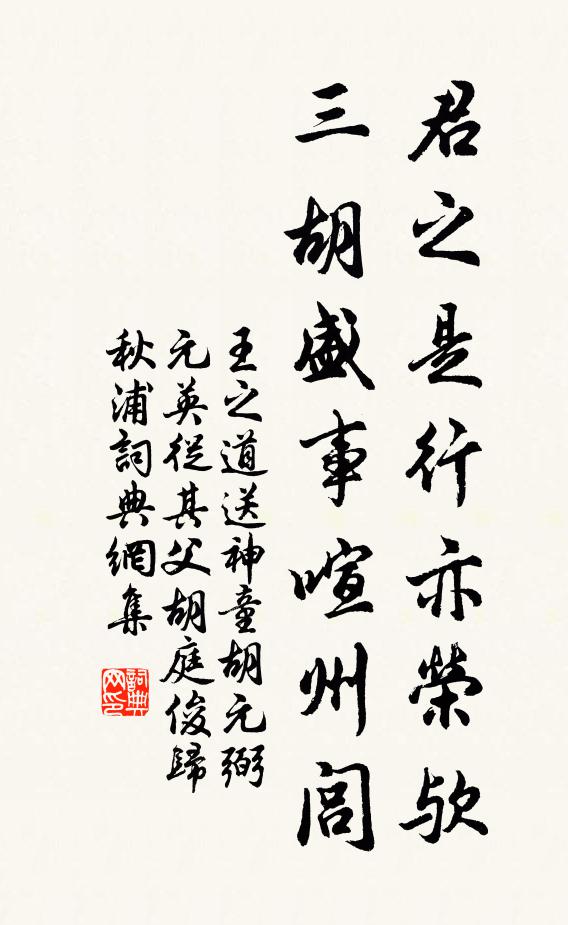 君之是行亦榮歟
三胡盛事喧州閭
王之道送神童胡元弼
元英從其父胡庭俊歸
秋浦詞典網集
詞典网印